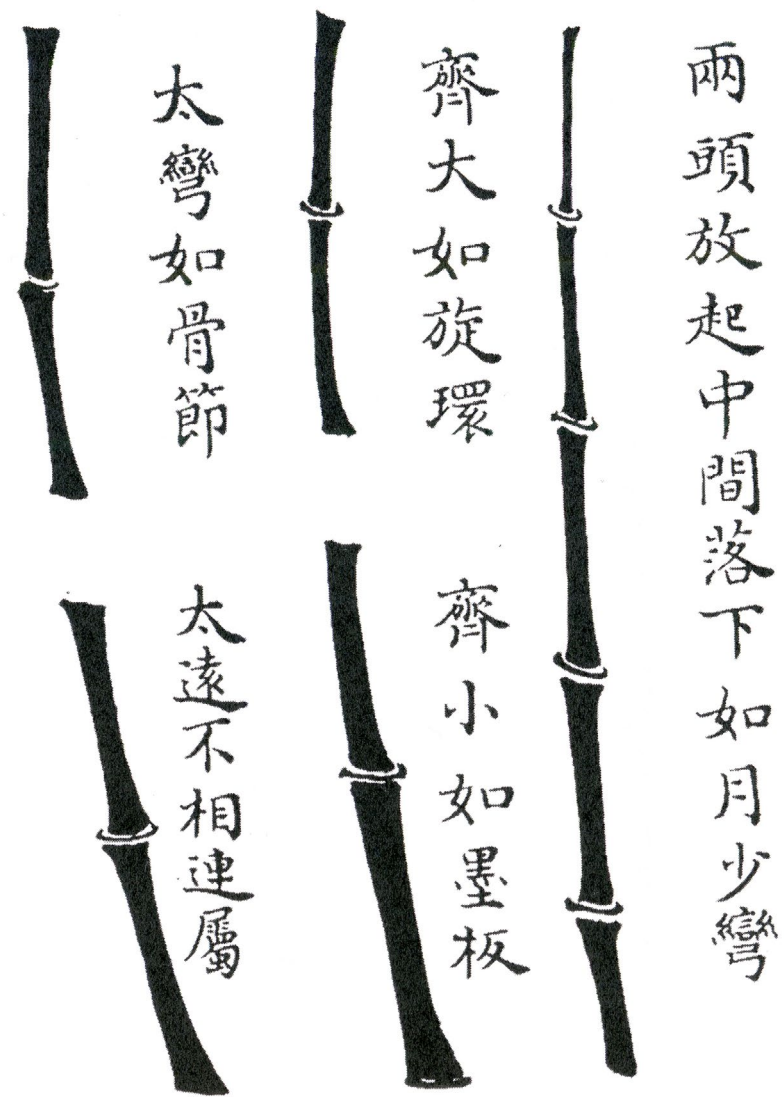 兩頭放起中間落下如月少彎
齊大如旋環
齊小如墨板
太彎如骨節
太遠不相連屬